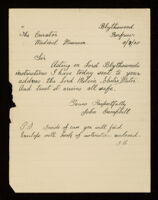 Blythswood
Renfrew
The Curator
Medical Museum
Sir
Acting on Lord Blythswoods
instructions I have today sent to your
address the Lord Kelvin
And trust it arrives all safe.
Yours Respectfully
John Campbell
P.S. Inside of case you will find
Envelope with book of instructions enclosed.
J.C.